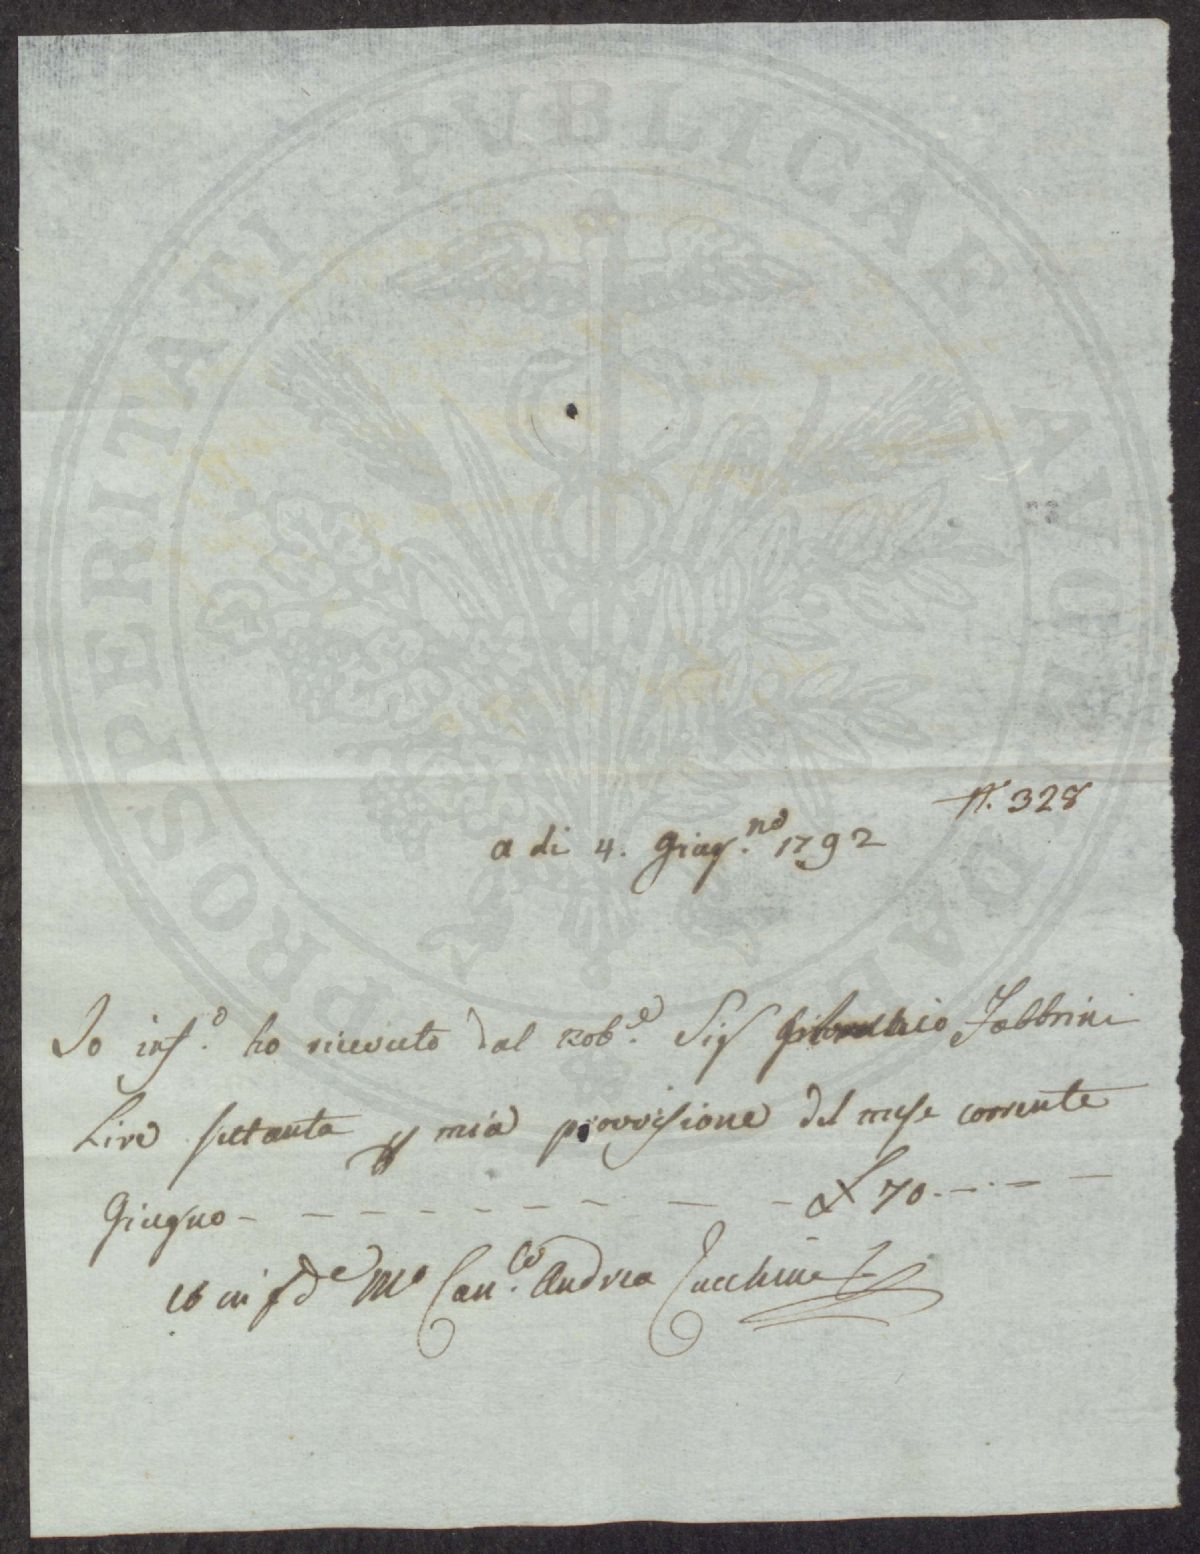 PROSPERITATI PVBLICAE AVGENDAE
N. 328
a di 4. Giug.no 1792
Io inf.o ho ricevuto dal Nob.e Sig Fabbrini
Lire settanta p mia provvisione del mese corrente
Giugno - - - - - - - - - £ 70 - - - -
Io in fde Mo Can.co Andrea Zucchini